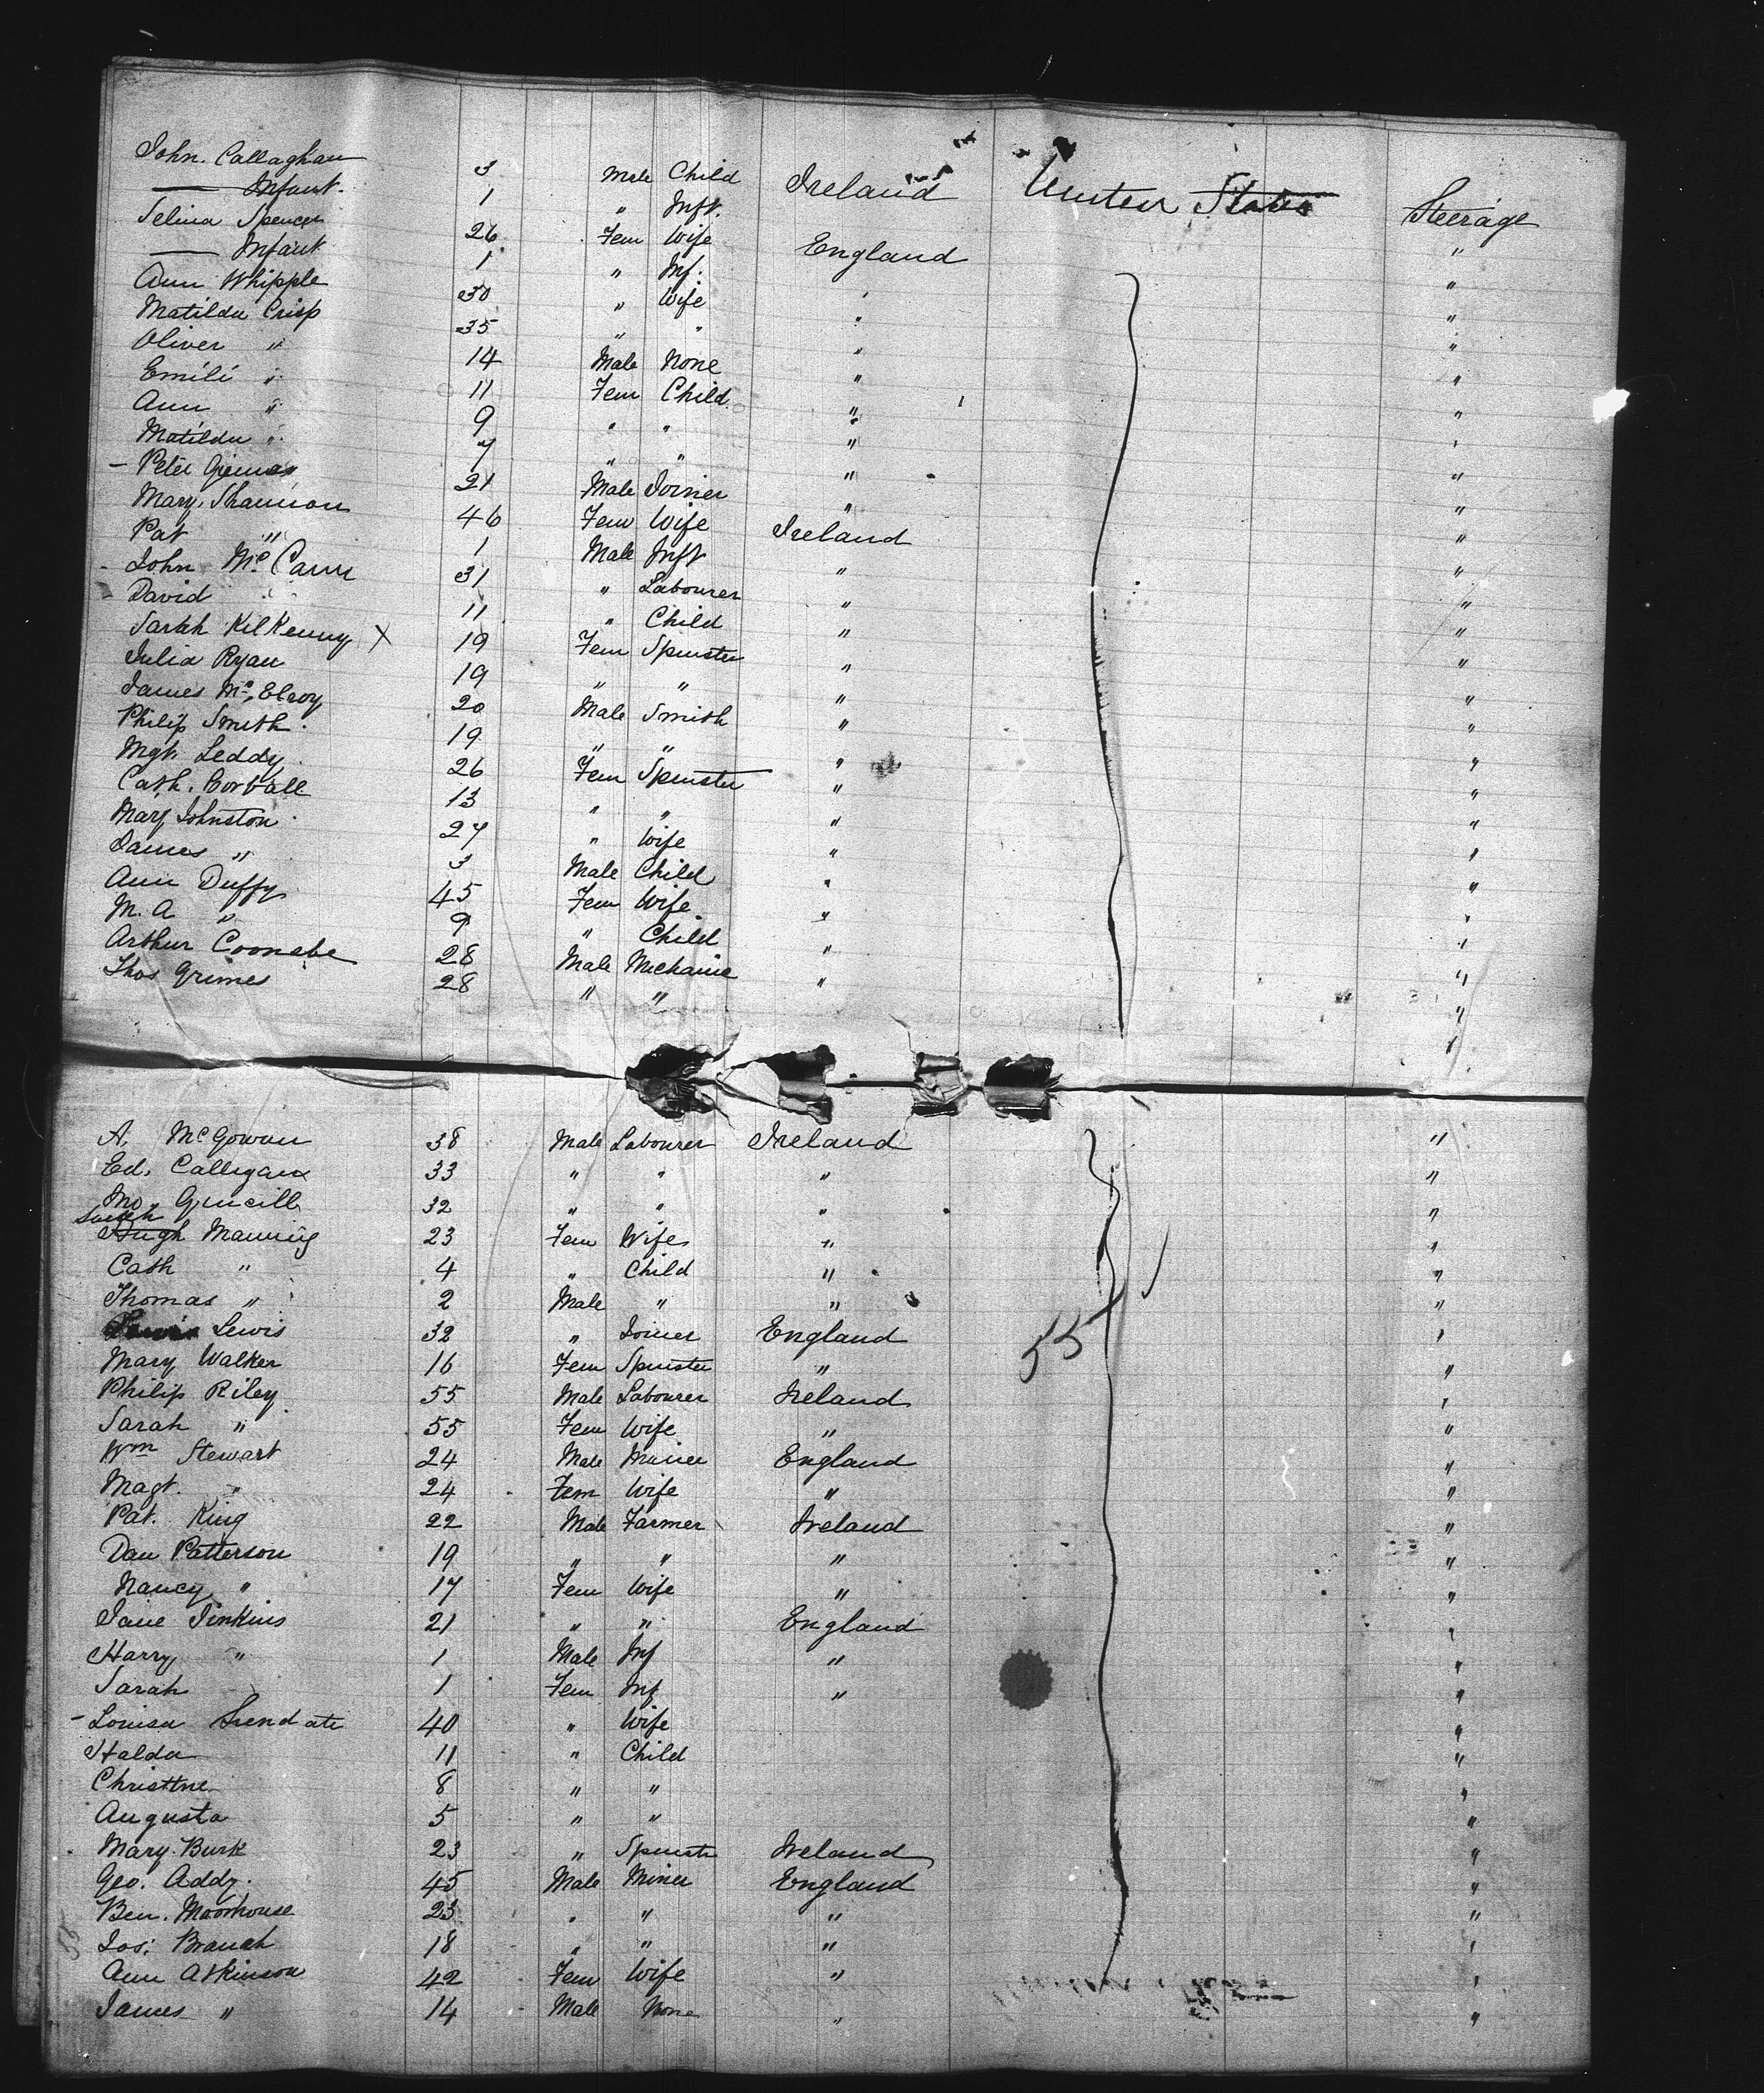 John. Callaghan 3 Male Child Ireland United States Steerage
— Infant. 1 " Inft. "
Selina Spencer 26 Fem Wife England "
— Infant 1 " Inf. " "
Ann Whipple 30 " Wife " "
Matilda Crisp 35 " " " "
Oliver " 14 Male None " "
Emili " 11 Fem Child " "
Ann " 9 " " " "
Matilda " 7 " " " "
- Peter 21 Male Joiner " "
Mary Shannon 46 Fem Wife Ireland "
Pat " 1 Male Inft " "
- John Mc Cann 31 " Labourer " "
- David 11 " Child " "
Sarah KilKenny X 19 Fem Spinster " "
Julia Ryan 19 " " " "
James Mc Elroy 20 Male Smith " "
Philip Smith 19 " " " "
Mgt. Leddy 26 Fem Spinster " "
Cath. Corball 13 " " " "
Mary Johnston 27 " Wife " "
James " 3 Male Child " "
Ann Duffy 45 Fem Wife " "
M. A " 9 " Child " "
Arthur Coonebe 28 Male Mechanic " "
Thos Grimes 28 " " "
A. McGowan 38 Male Labourer Ireland "
Ed. Calligan 33 " " " "
Jno. 32 " " " "
Sarah
Hugh Manning 23 Fem Wife " "
Cath " 4 " Child " "
Thomas " 2 Male " " "
Lewis 32 " Joiner England 55 "
Mary Walker 16 Fem Spinster " "
Philip Riley 55 Male Labourer Ireland "
Sarah " 55 Fem Wife " "
Wm Stewart 24 Male Miner England "
Magt. " 24 Fem Wife " "
Pat. King 22 Male Farmer Ireland "
Dan Patterson 19 " " " "
Nancy " 17 Fem Wife " "
Jane Jenkins 21 " " England "
Harry " 1 Male Inf " "
Sarah 1 Fem Inf " "
- Louisa 40 " Wife "
Halda 11 " Child "
Christine 8 " " "
Augusta 5 " " "
Mary Burk 23 " Spinster Ireland "
Geo. Addy. 45 Male Miner England "
Ben. Moorhouse 23 " " " "
Jos. Branch 18 " " " "
Ann Atkinson 42 Fem Wife " "
James " 14 Male None " "